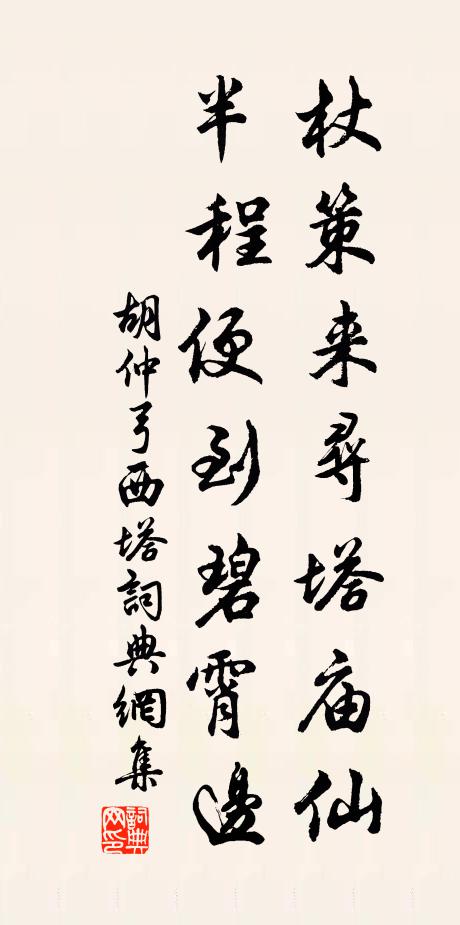 杖策来尋塔庙仙
半程便到碧霄邊
胡仲弓西塔詞典網集
詞典网印